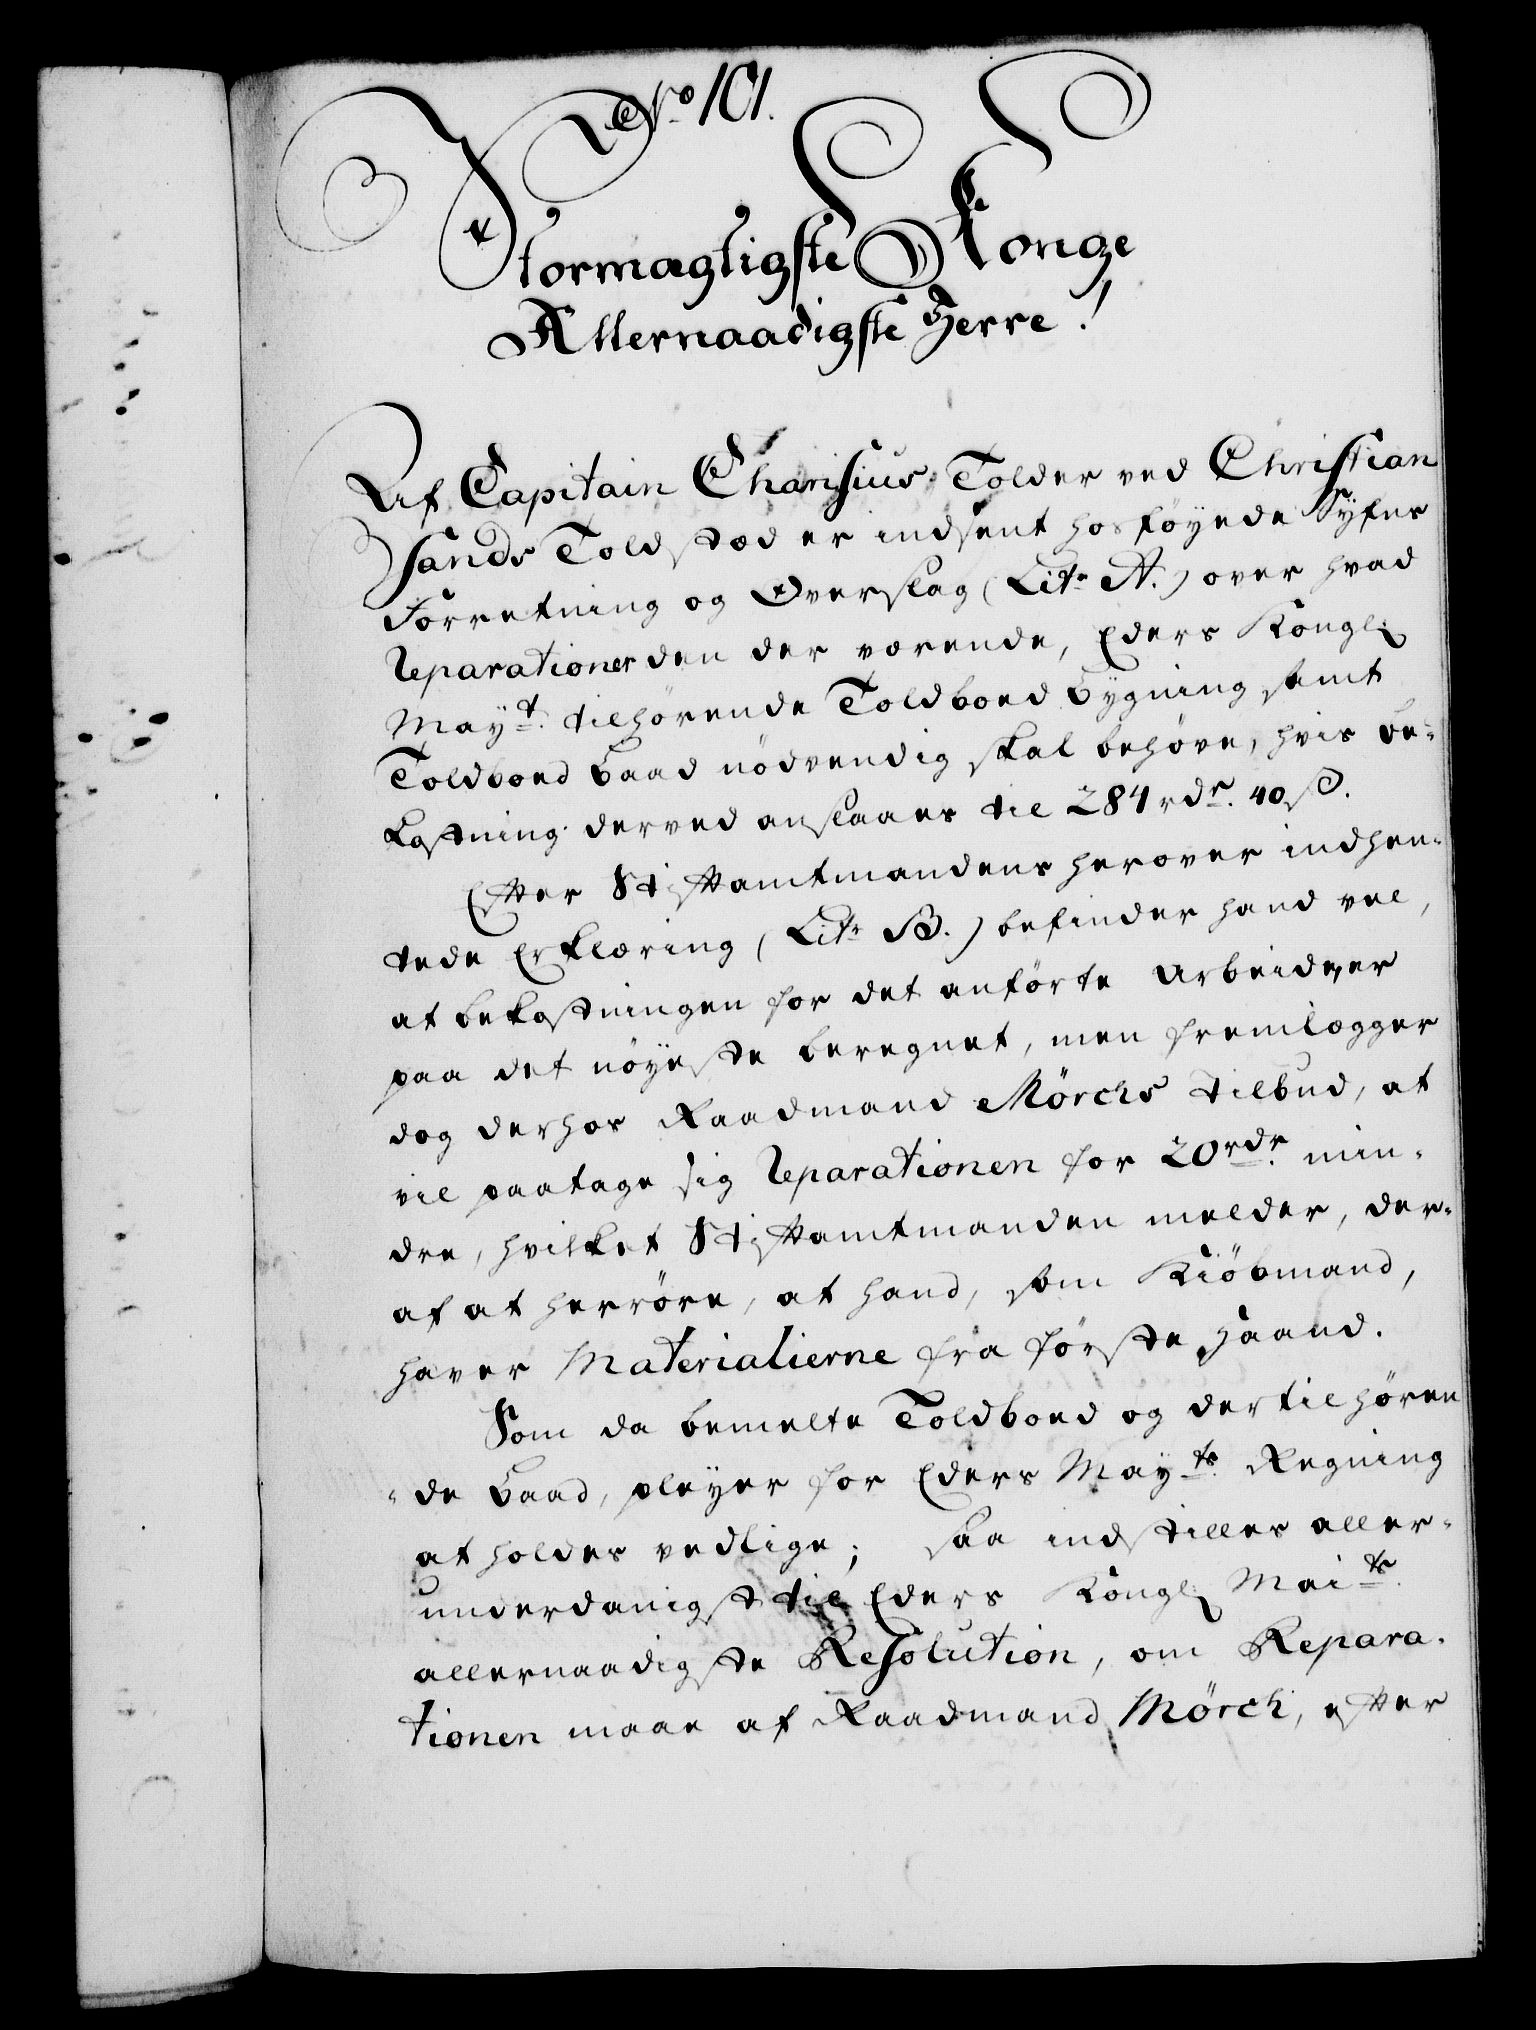 No 101.
Stormægtigste Konge
Allernaadigste Herre!
Af Capitain Charisius Tolder ved Christian
Sands Toldstæd er indsent hosføyede Syfns
Forretning og Overslag (Litr A.) over hvad
Reparationer den der værende, Eders Kongl:
Mayt. tilhørende Toldboed Bygning samt
Toldboed Baad nödvendig skal behøve, hvis be-
kostning derved anslaaes til 284 rdr. 40 ß.
Efter Stiftamtmandens herover indhen-
tede Erklæring (Litr B.) befinder hand vel,
at bekostningen for det anførte Arbeide, er
paa det nöyeste beregnet, men fremlægger
dog derhos Raadmand Mörchs tilbud, at
vil paatage sig Reparationen for 20 rdr. min-
dre, hvilket Stiftamtmanden melder, der-
af at herrøre, at hand, som Kiöbmand,
haver Materialierne fra første Haand.
Som da bemelte Toldboed og dertil hören
-de Baad, pleyer for Eders Mayts. Regning
at holdes vedlige; saa indstilles aller-
underdanigst til Eders Kongl: Maits.
allernaadigste Resolution, om Repara-
tionen maae af Raadmand Mörch, efter